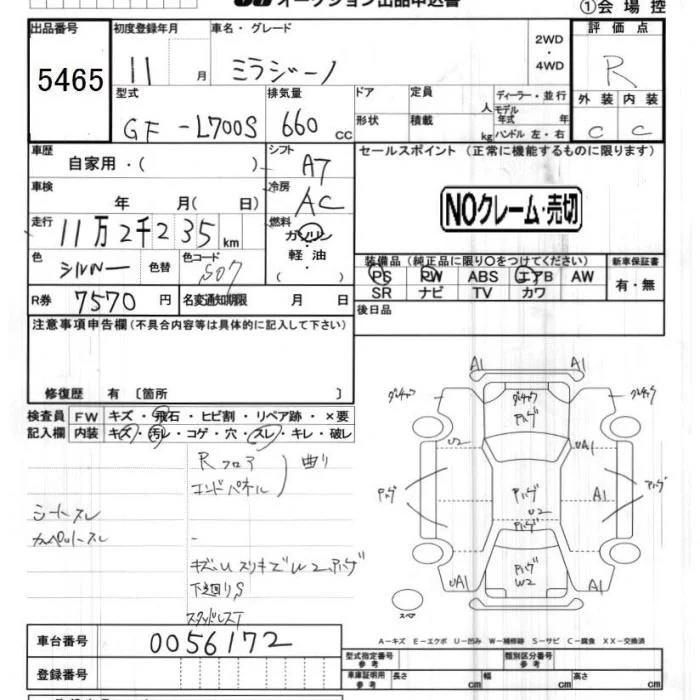 オークション出品申込書
①会場控
出品番号 初度登録年月 車名・グレード 2WD・4WD 評価点
5465 11 月 ミラジーノ R
型式 排気量 ドア 定員 人 ディーラー・並行 外装 内装
GF-L700S 660 CC 形状 積載 kg モデル年式 年 ハンドル 左・右 C C
車歴 シフト セールスポイント (正常に機能するものに限ります)
自家用・( ) A7
車検 年 月( 日) 冷房 AC
NOクレーム・売切
走行 11万2千235km 燃料 ガソリン 軽油 ( )
装備品 (純正品に限り○をつけてください) 新車保証書
色 シルバー 色替 色コード S07
PS PW ABS エアB AW 有・無
SR ナビ TV カワ
R券 7570 円 名変通知期限 月 日
後日品
注意事項申告欄(不具合内容等は具体的に記入して下さい)
修復歴 有 〔箇所 〕
検査員 FW キズ・飛石・ヒビ割・リペア跡・×要
記入欄 内装 キズ・汚レ・コゲ・穴・スレ・キレ・破レ
Rフロア
エンドパネル 曲り
シートスレ
カーペットスレ
下廻りS
スタッドレスT
A1 A1
U2 UA1
A1
U2
UA1 W2 A1
スペア
A-キズ E-エクボ U-凹み W-補修跡 S-サビ C-腐食 XX-交換済
車台番号 0056172
型式指定番号 参考 類別区分番号 参考
登録番号
車庫証明用 参考 長さ cm 幅 cm 高さ cm